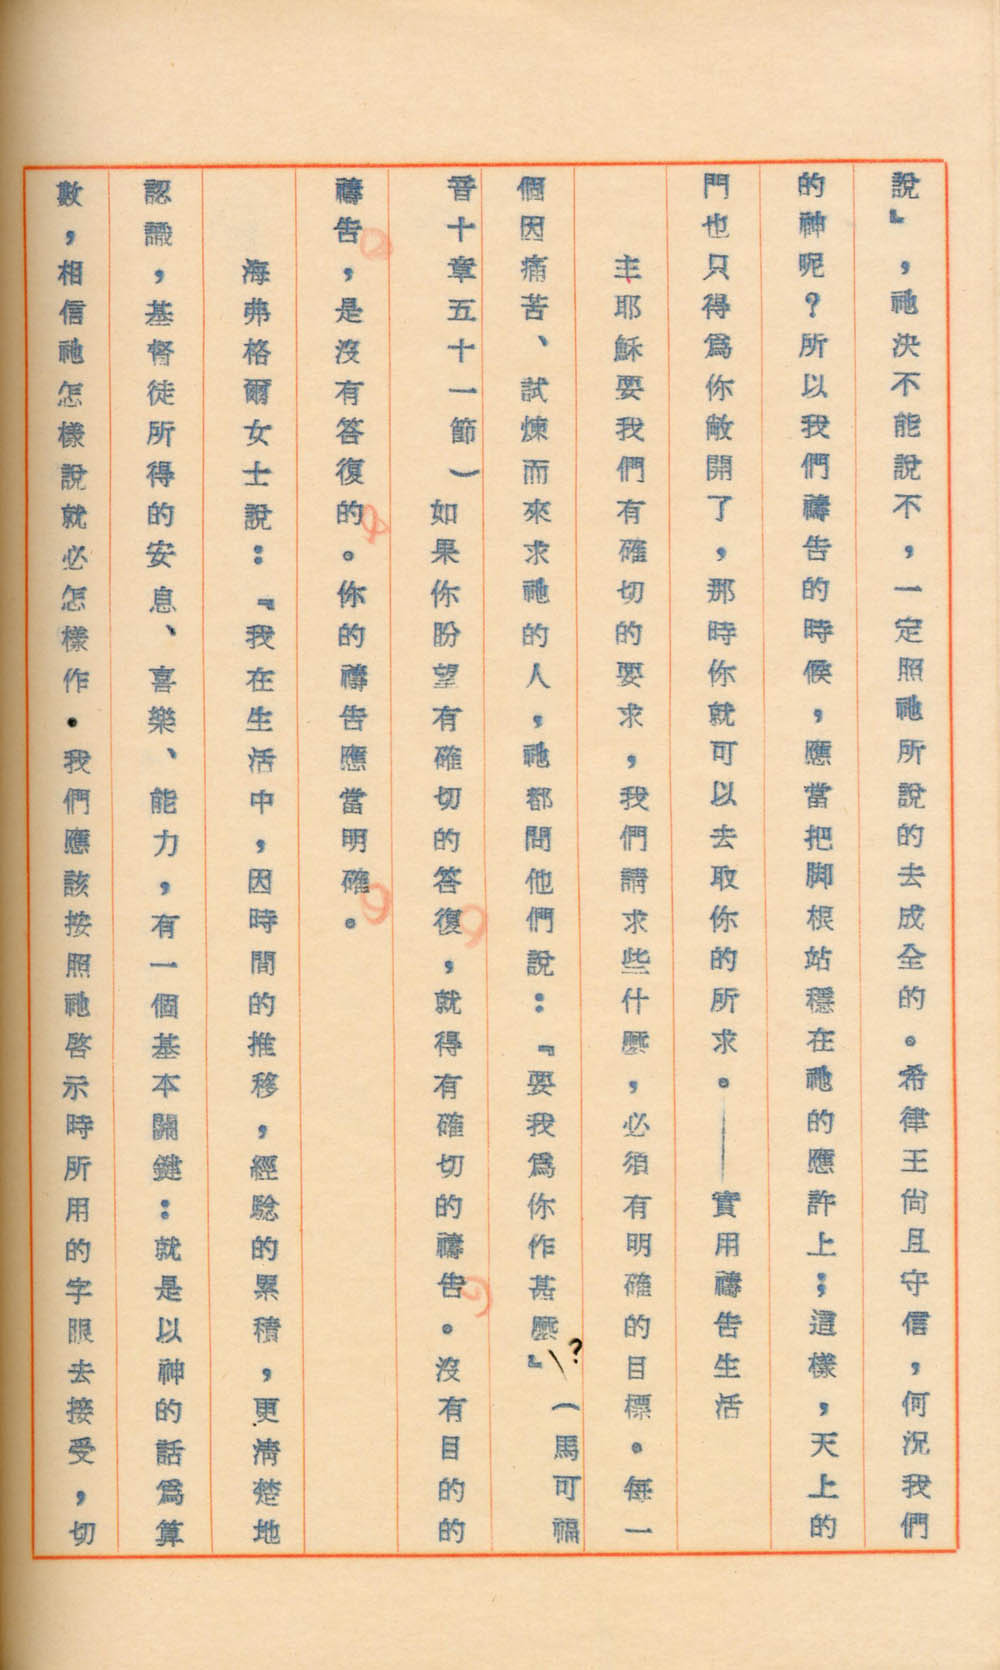 說』，祂決不能說不，一定照祂所說的去成全的。希律王尚且守信，何況我們
的神呢？所以我們禱告的時候，應當把脚根站穩在祂的應許上；這樣，天上的
門也只得爲你敞開了，那時你就可以去取你的所求。——實用禱告生活
主耶穌要我們有確切的要求，我們請求些什麼，必須有明確的目標。每一
個因痛苦、試煉而來求祂的人，祂都問他們說：『要我爲你作甚麼』?（馬可福
音十章五十一節）如果你盼望有確切的答復，就得有確切的禱告。沒有目的的
禱告，是沒有答復的。你的禱告應當明確。
海弗格爾女士說：『我在生活中，因時間的推移，經驗的累積，更清楚地
認識，基督徒所得的安息、喜樂、能力，有一個基本關鍵：就是以神的話爲算
數，相信祂怎樣說就必怎樣作．我們應該按照祂啓示時所用的字眼去接受，切